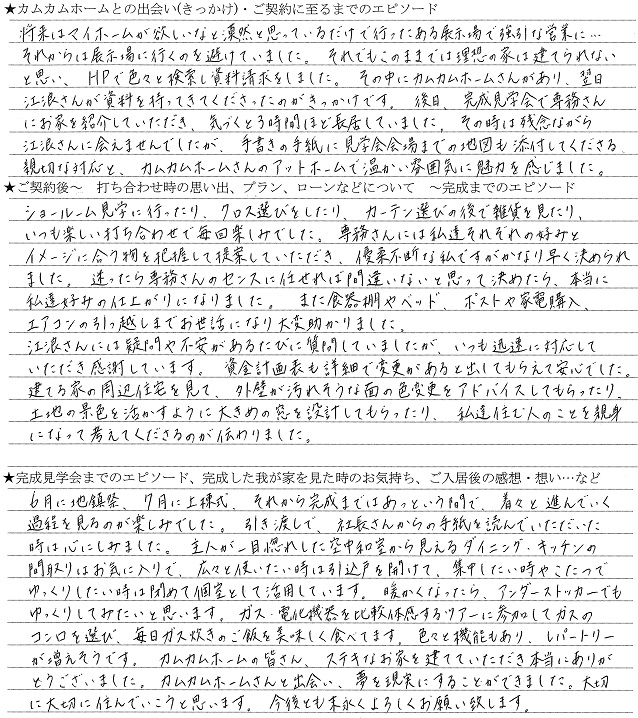 ★カムカムホームとの出会い(きっかけ)・ご契約に至るまでのエピソード
将来はマイホームが欲しいなと漠然と思っているだけで行ったある展示場で強引な営業に…
それからは展示場に行くのを避けていました。それでもこのままでは理想の家は建てられない
と思い、HPで色々と検索し資料請求をしました。その中にカムカムホームさんがあり、翌日
江浪さんが資料を持ってきてくださったのがきっかけです。後日、完成見学会で専務さん
にお家を紹介していただき、気づくと3時間ほど長居していました。その時は残念ながら
江浪さんに会えませんでしたが、手書きの手紙に見学会会場までの地図も添付してくださる
親切な対応と、カムカムホームさんのアットホームで温かい雰囲気に魅力を感じました。
★ご契約後～ 打ち合わせ時の思い出、プラン、ローンなどについて ～完成までのエピソード
ショールーム見学に行ったり、クロス選びをしたり、カーテン選びの後で雑貨を見たり、
いつも楽しい打ち合わせで毎回楽しみでした。専務さんには私達それぞれの好みと
イメージに合う物を把握して提案していただき、優柔不断な私ですがかなり早く決められ
ました。迷ったら専務さんのセンスに任せれば間違いないと思って決めたら、本当に
私達好みの仕上がりになりました。また食器棚やベッド、ポストや家電購入、
エアコンの引っ越しまでお世話になり大変助かりました。
江浪さんには疑問や不安があるたびに質問していましたが、いつも迅速に対応して
いただき感謝しています。資金計画表も詳細で変更があると出してもらえて安心でした。
建てる家の周辺住宅を見て、外壁が汚れそうな面の色変更をアドバイスしてもらったり、
土地の景色を活かすように大きめの窓を設計してもらったり、私達住む人のことを親身
になって考えてくださるのが伝わりました。
★完成見学会までのエピソード、完成した我が家を見た時のお気持ち、ご入居後の感想・想い…など
6月に地鎮祭、7月に上棟式、それから完成まではあっという間で、着々と進んでいく
過程を見るのが楽しみでした。引き渡しで、社長さんからの手紙を読んでいただいた
時は心にしみました。主人が一目惚れした空中和室から見えるダイニング・キッチンの
間取りはお気に入りで、広々と使いたい時は引込戸を開けて、集中したい時やこたつで
ゆっくりしたい時は閉めて個室として活用しています。暖かくなったら、アンダーストッカーでも
ゆっくりしてみたいと思います。ガス・電化機器を比較体感するツアーに参加してガスの
コンロを選び、毎日ガス炊きのご飯を美味しく食べてます。色々と機能もあり、レパートリー
が増えそうです。カムカムホームの皆さん、ステキなお家を建てていただき本当にありが
とうございました。カムカムホームさんと出会い、夢を現実にすることができました。大切
に大切に住んでいこうと思います。今後とも末永くよろしくお願い致します。